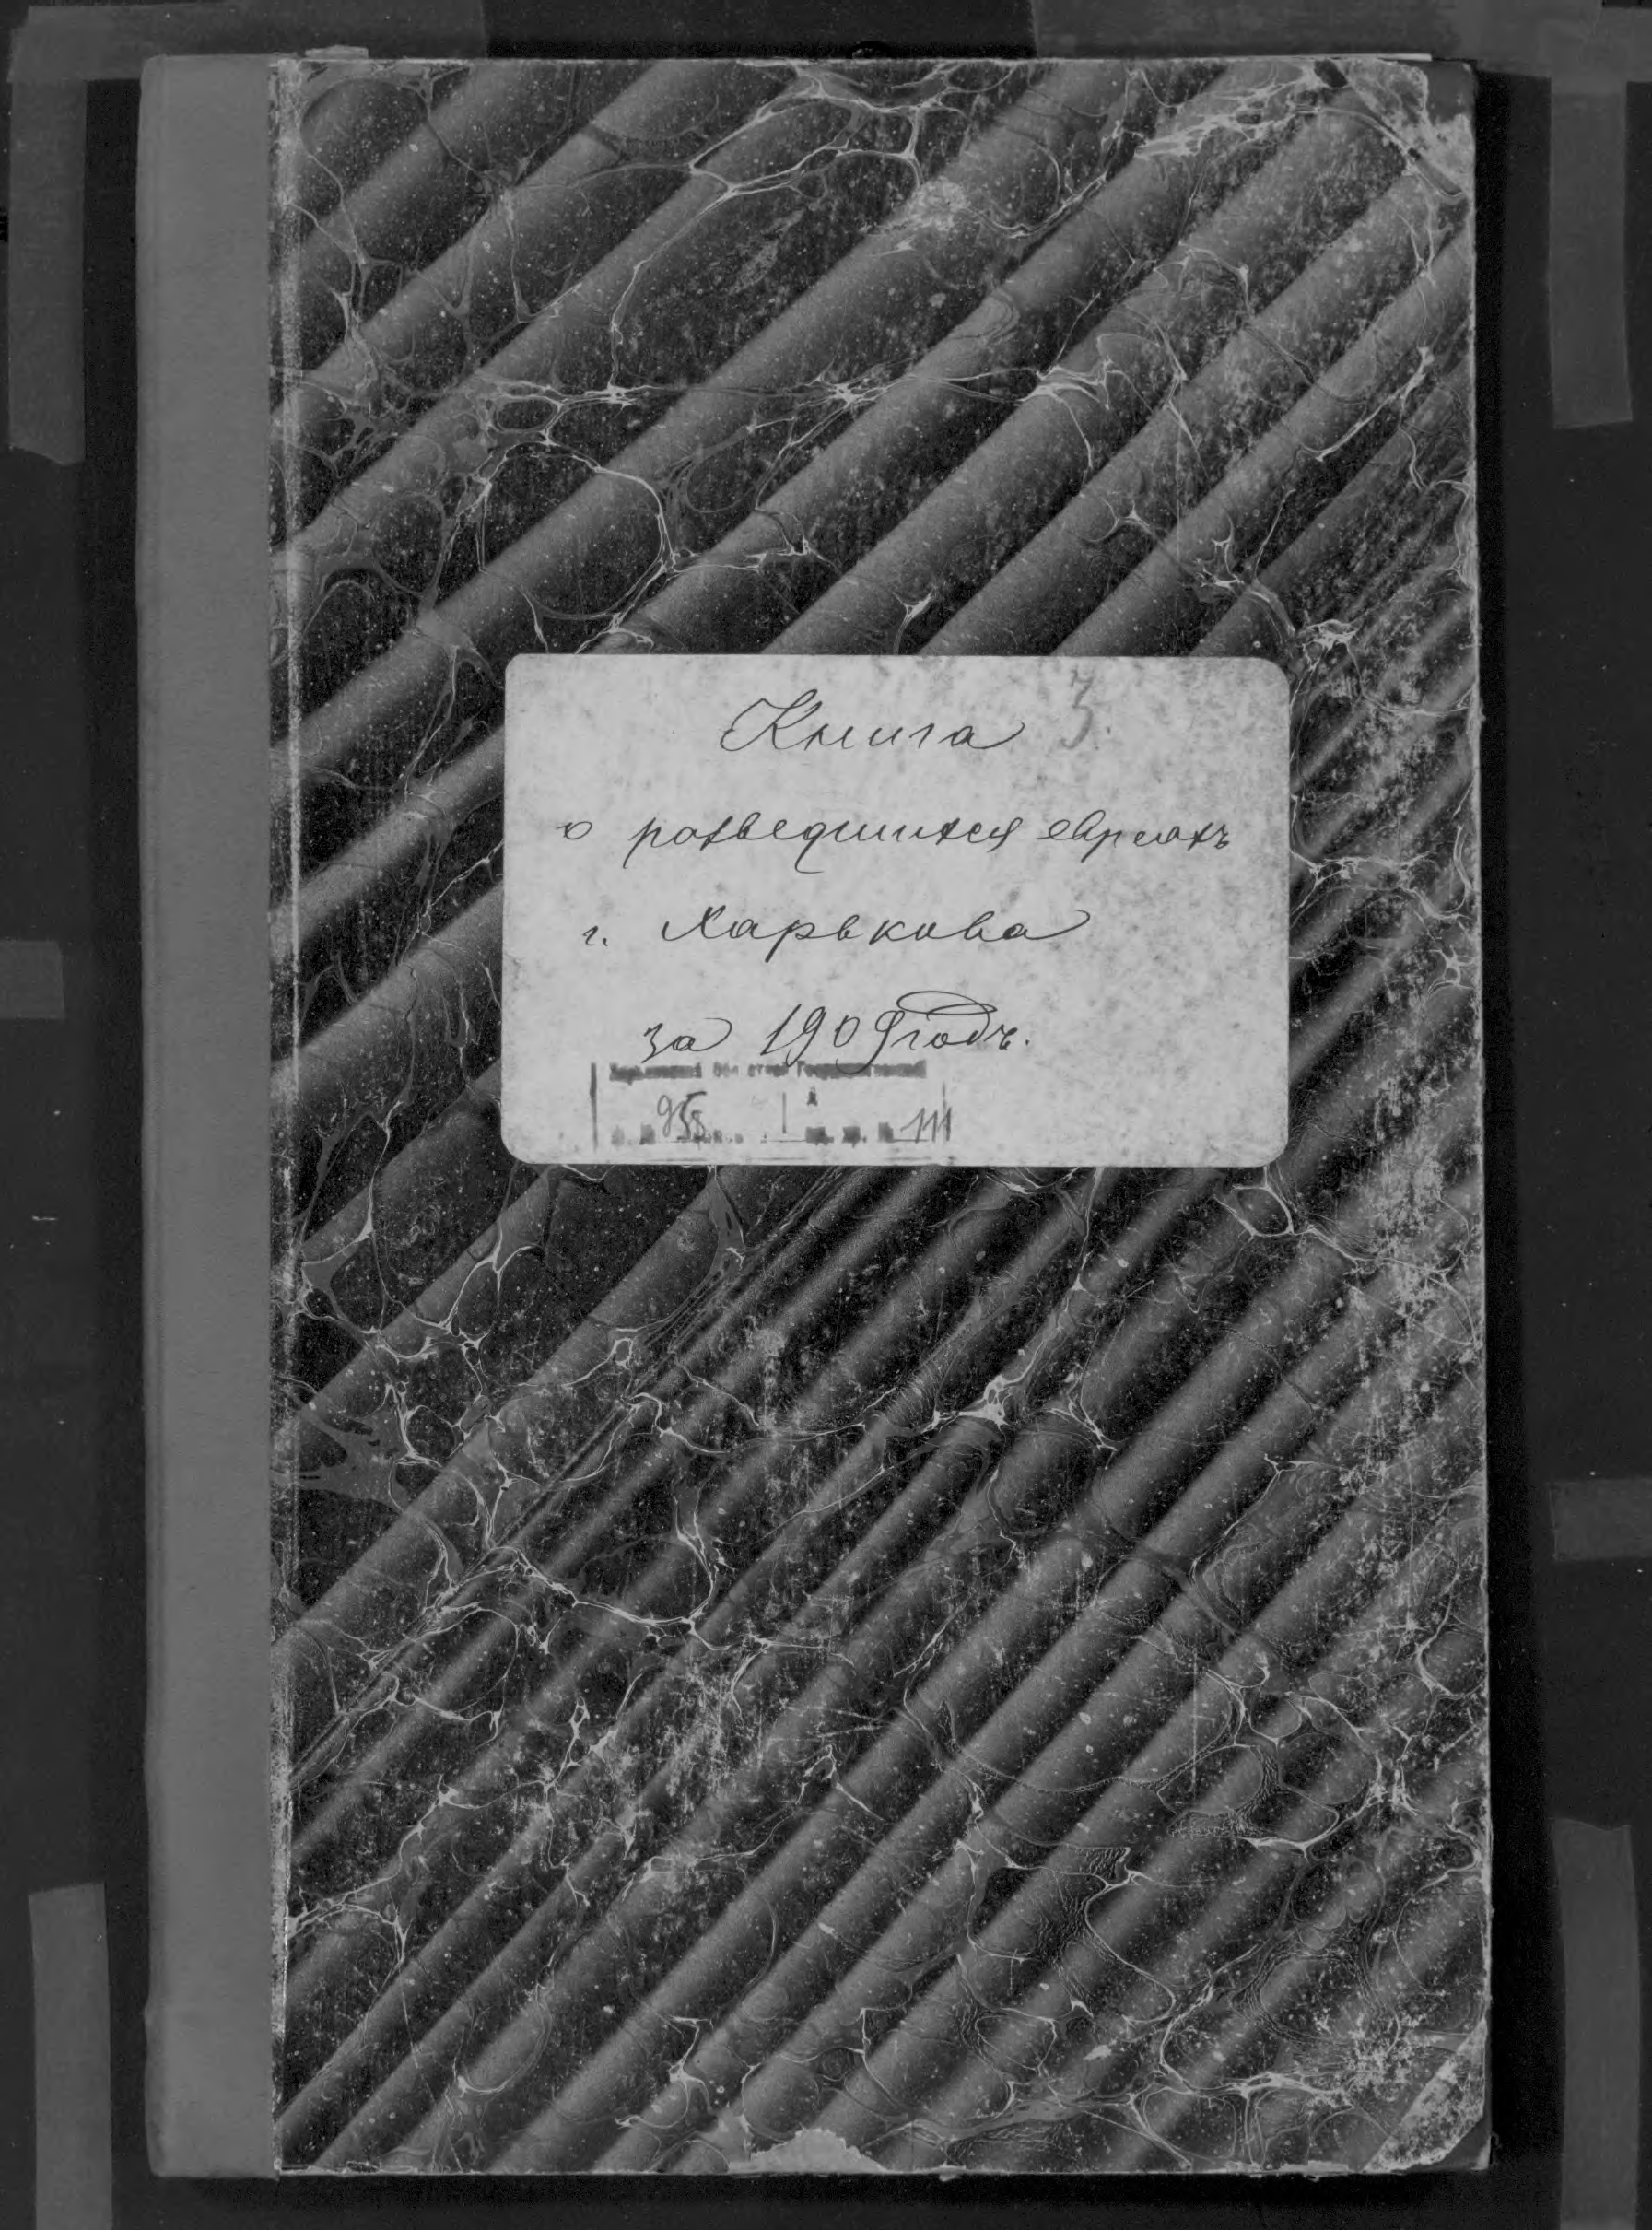 Книга 3.
о розведшихся евреяхъ
г. Харькова
за 1909 годъ.
Харьковский Областной Государственный
А
Ф. № 958 оп. 1 ед. хр. № 111